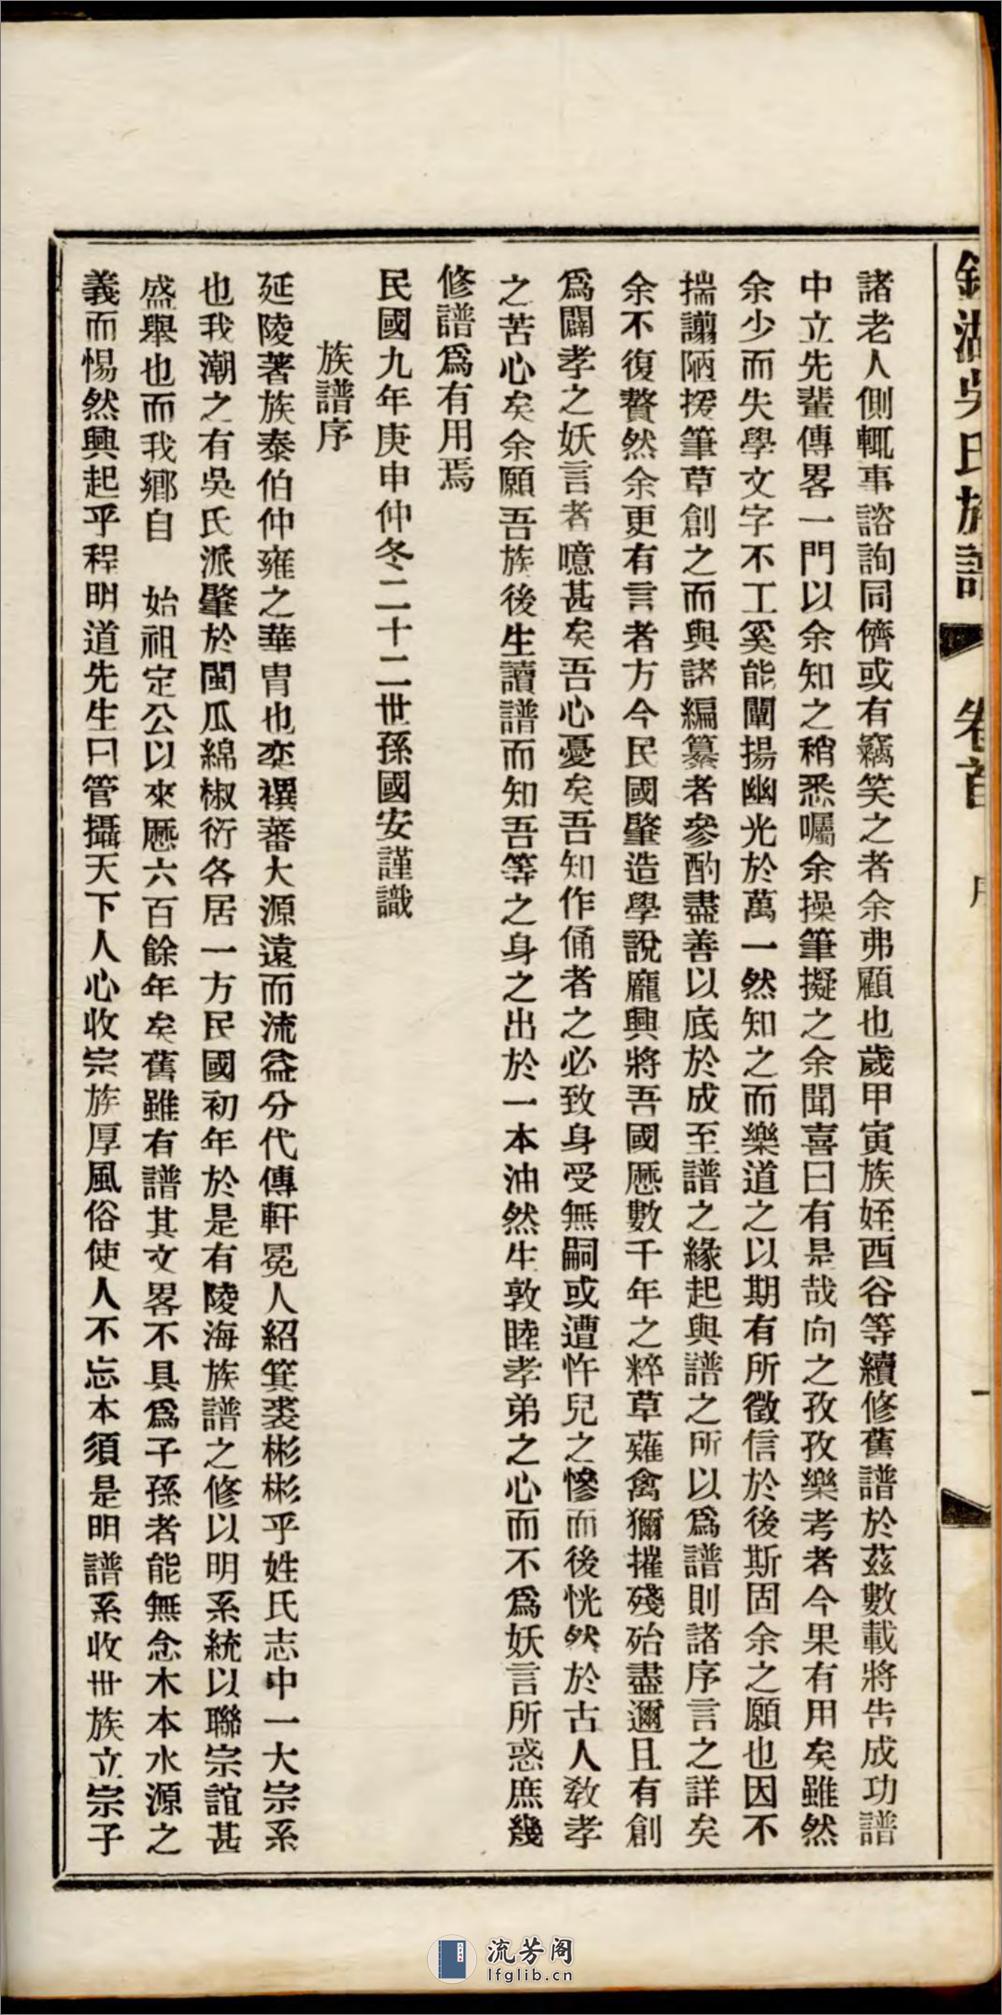 吳氏族譜 卷首 序 一
諸老人側輒事諮詢同儕或有竊笑之者余弗顧也歲甲寅族姪酉谷等續修舊譜於茲數載將告成功譜
中立先輩傳畧一門以余知之稍悉囑余操筆擬之余聞喜曰有是哉向之孜孜樂考者今果有用矣雖然
余少而失學文字不工奚能闡揚幽光於萬一然知之而樂道之以期有所徵信於後斯固余之願也因不
揣譾陋援筆草創之而與諸編纂者參酌盡善以底於成至譜之緣起與譜之所以為譜則諸序言之詳矣
余不復贅然余更有言者方今民國肇造學說龐興將吾國歷數千年之粹草薙禽獮摧殘殆盡邇且有創
為闢孝之妖言者噫甚矣吾心憂矣吾知作俑者之必致身受無嗣或遭忤兒之慘而後恍然於古人教孝
之苦心矣余願吾族後生讀譜而知吾等之身之出於一本油然生敦睦孝弟之心而不為妖言所惑庶幾
修譜為有用焉
民國九年庚申仲冬二十二世孫國安謹識
族譜序
延陵著族泰伯仲雍之華冑也奕禩蕃大源遠而流益分代傳軒冕人紹箕裘彬彬乎姓氏志中一大宗系
也我潮之有吳氏派肇於閩瓜綿椒衍各居一方民國初年於是有陵海族譜之修以明系統以聯宗誼甚
盛舉也而我鄉自 始祖定公以來歷六百餘年矣舊雖有譜其文畧不具為子孫者能無念木本水源之
義而惕然興起乎程明道先生曰管攝天下人心收宗族厚風俗使人不忘本須是明譜系收世族立宗子
流芳阁
lfglib.cn